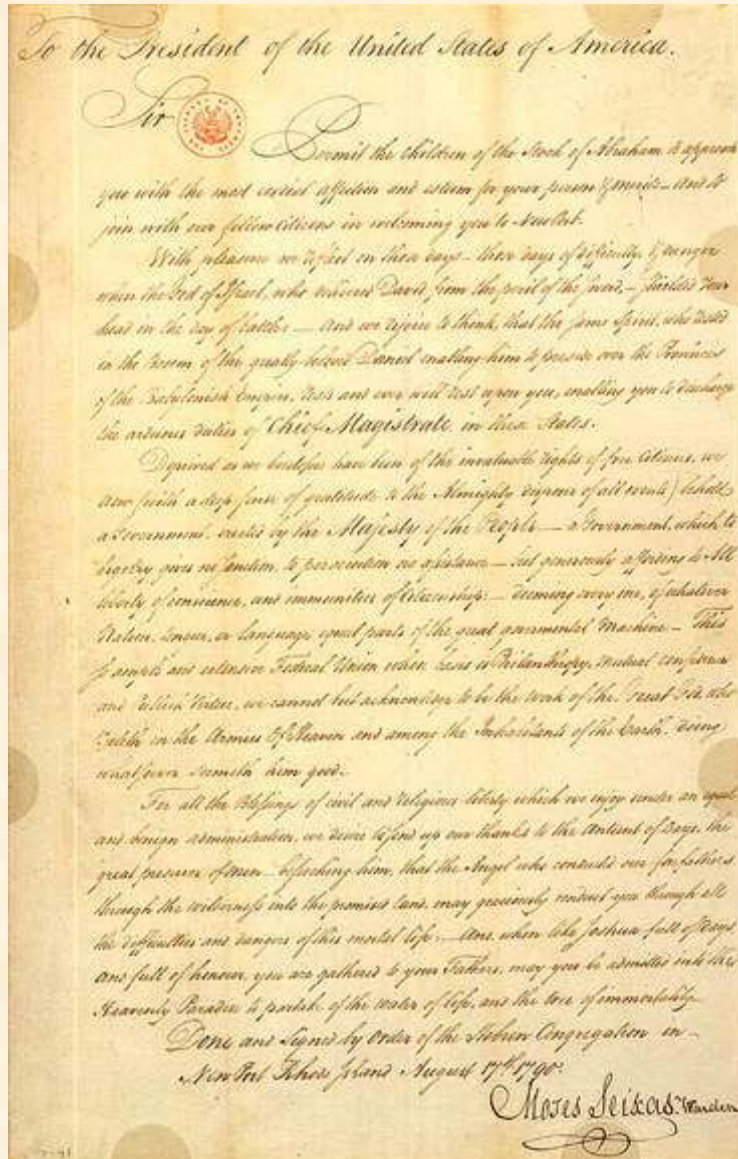 To the President of the United States of America.
Sir
Permit the Children of the Stock of Abraham to approach
you with the most cordial affection and esteem for your person & merits — and to
join with our fellow Citizens in welcoming you to NewPort.
With pleasure we reflect on those days — those days of difficulty, & danger
when the God of Israel, who delivered David from the peril of the sword, — shielded your
head in the day of battle: — and we rejoice to think, that the same Spirit, who rested
in the Bosom of the greatly beloved Daniel enabling him to preside over the Provinces
of the Babylonish Empire, rests and ever will rest upon you, enabling you to discharge
the arduous duties of Chief Magistrate in these States.
Deprived as we heretofore have been of the invaluable rights of free Citizens, we
now (with a deep sense of gratitude to the Almighty disposer of all events) behold
a Government, erected by the Majesty of the People — a Government, which to
bigotry gives no sanction, to persecution no assistance — but generously affording to All
liberty of conscience, and immunities of Citizenship: — deeming every one, of whatever
Nation, tongue, or language equal parts of the great governmental Machine — This
so ample and extensive Federal Union whose basis is Philanthropy, Mutual confidence
and Publick Virtue, we cannot but acknowledge to be the work of the Great God, who
ruleth in the Armies Of Heaven and among the Inhabitants of the Earth, doing
whatsoever seemeth him good.
For all the Blessings of civil and religious liberty which we enjoy under an equal
and benign administration, we desire to send up our thanks to the Antient of Days, the
great preserver of Men — beseeching him, that the Angel who conducted our forefathers
through the wilderness into the promised land, may graciously conduct you through all
the difficulties and dangers of this mortal life: — and, when like Joshua full of days,
and full of honour, you are gathered to your Fathers, may you be admitted into the
Heavenly Paradise to partake of the water of life, and the tree of immortality.
Done and Signed by Order of the Hebrew Congregation in —
NewPort Rhode Island August 17th 1790.
Moses Seixas, Warden